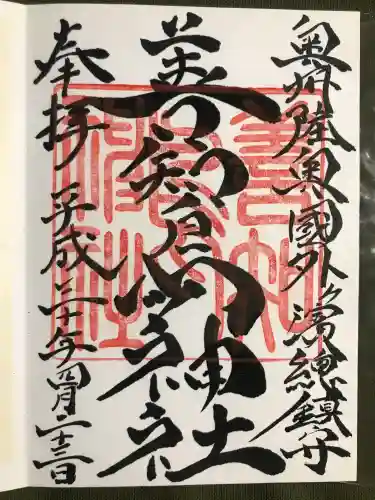 奥州陸奥國外ヶ濱總鎮守
善知鳥神社
奉拝 平成三十年四月二十三日
善知鳥神社